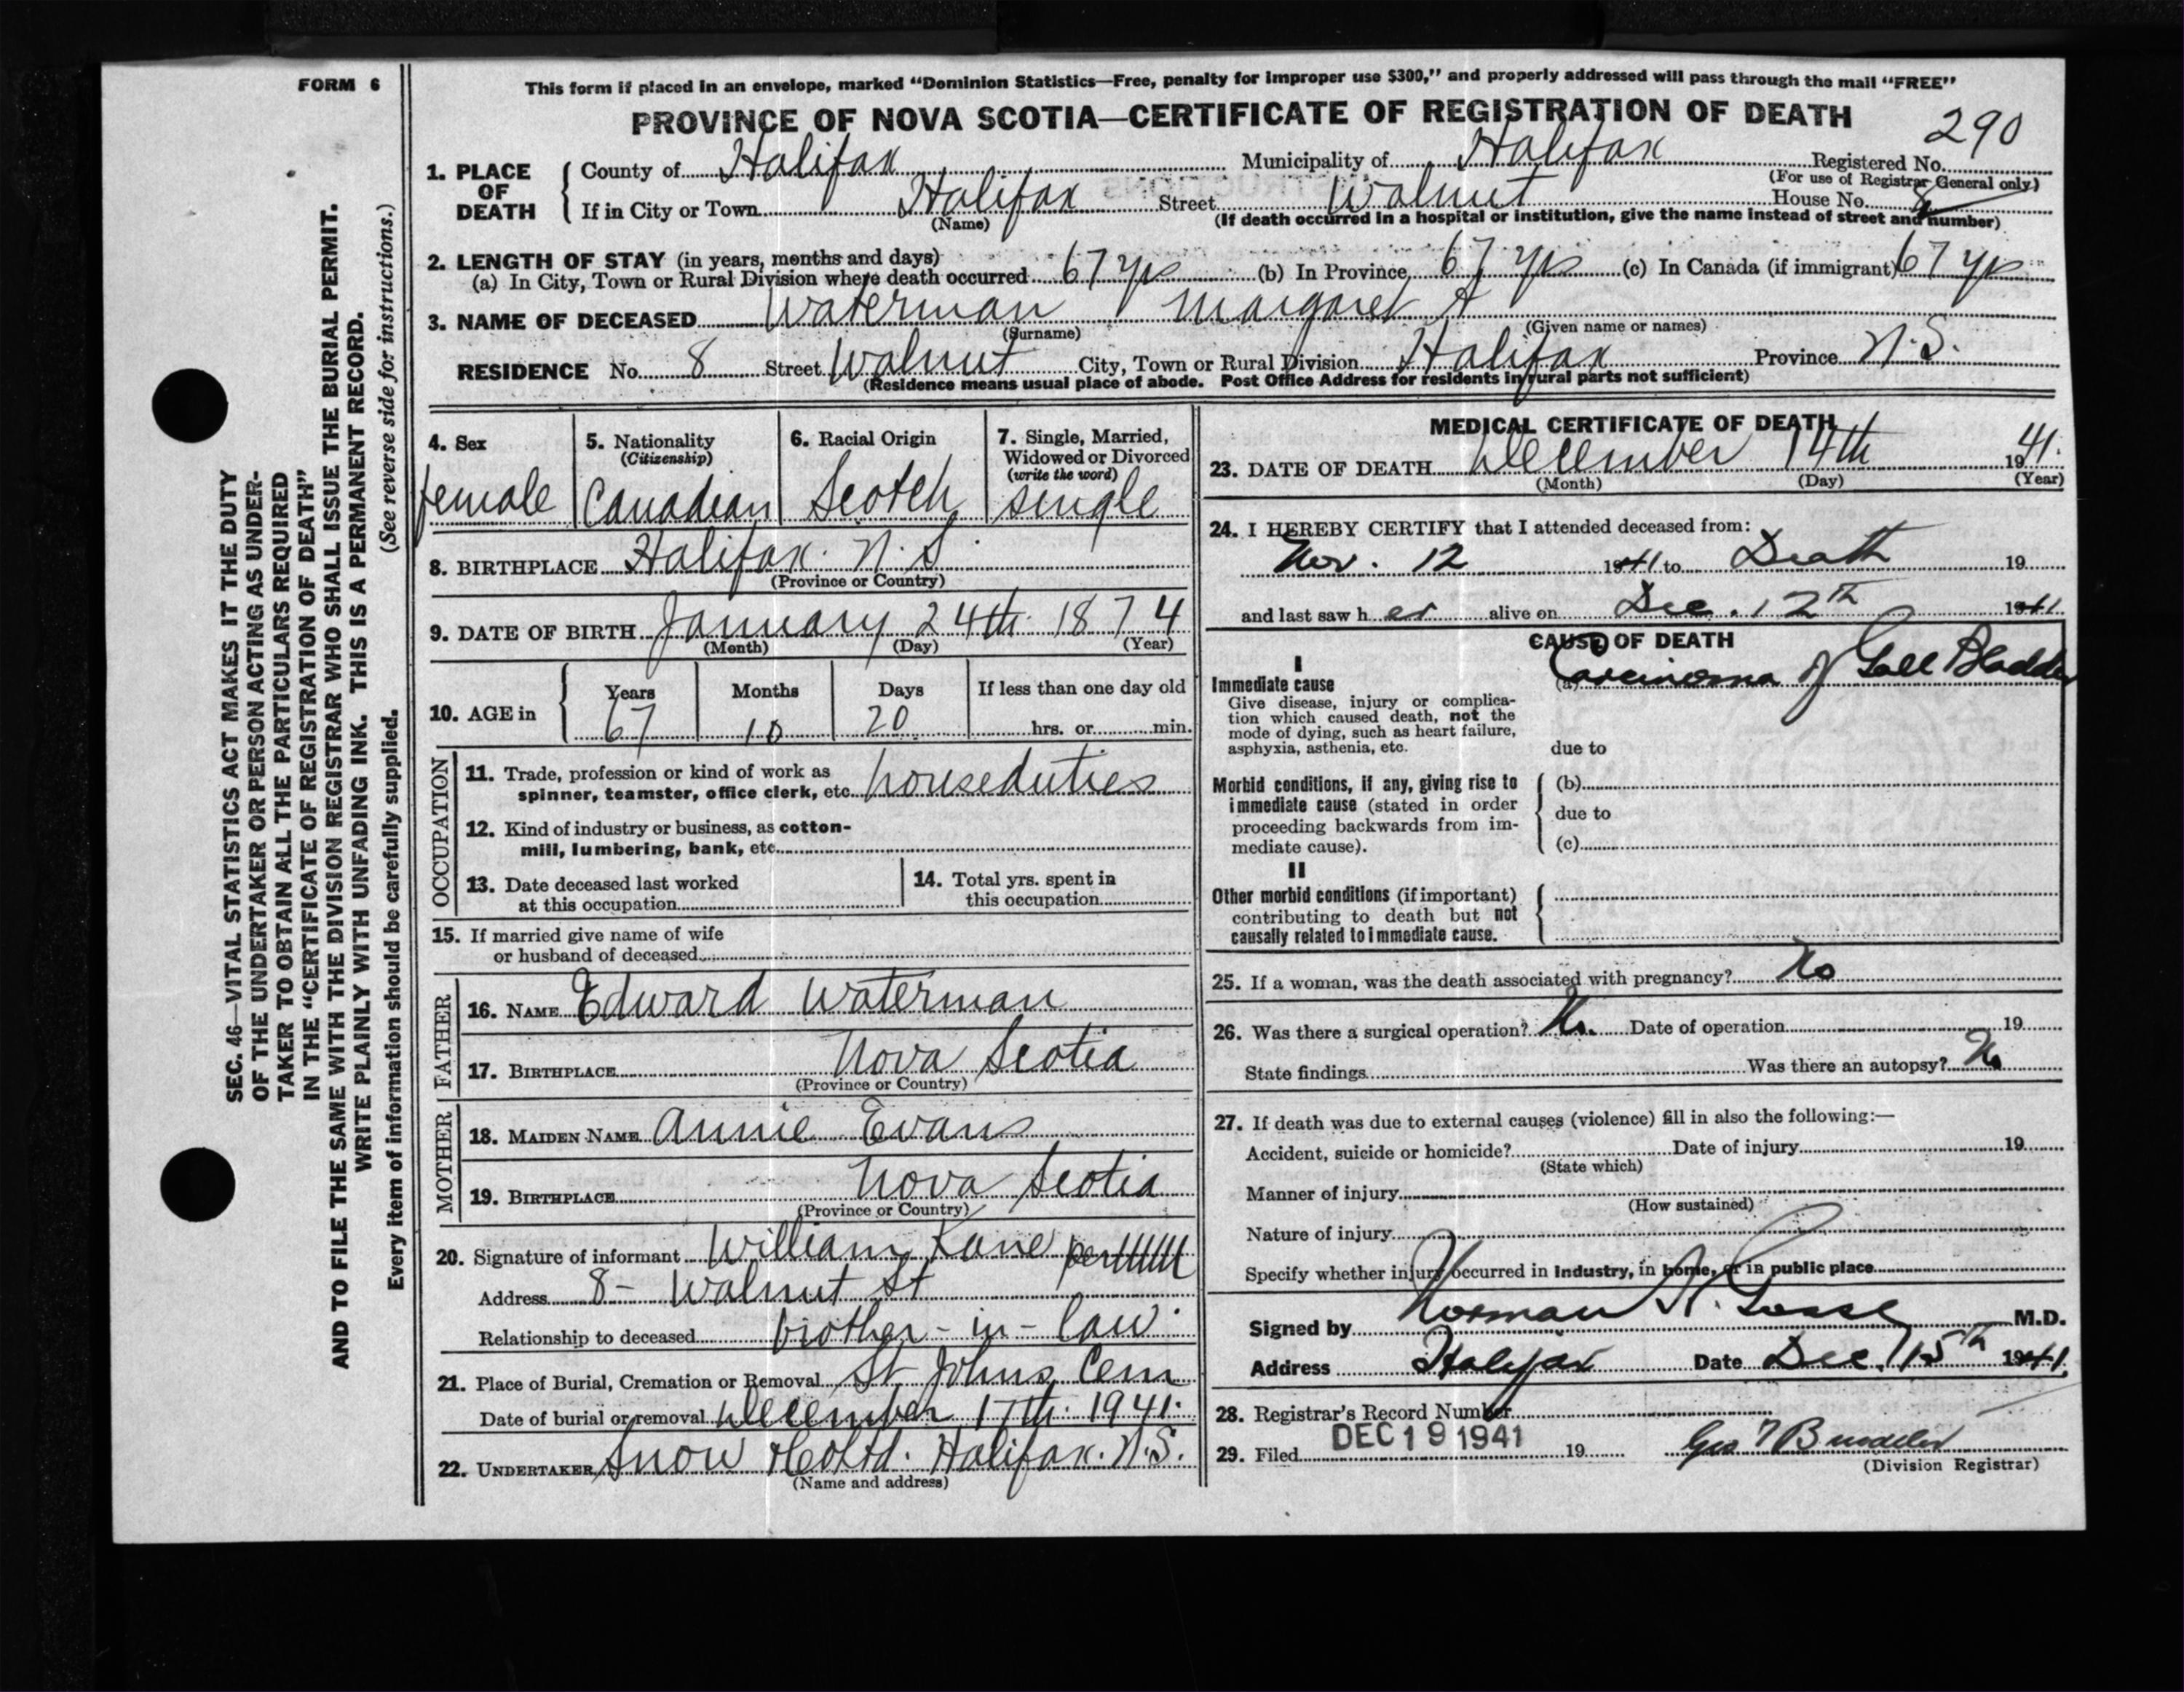 FORM 6
This form if placed in an envelope, marked "Dominion Statistics—Free, penalty for improper use $300," and properly addressed will pass through the mail "FREE"
PROVINCE OF NOVA SCOTIA—CERTIFICATE OF REGISTRATION OF DEATH
290
1. PLACE OF DEATH
County of Halifax Municipality of Halifax Registered No.
(For use of Registrar General only)
If in City or Town Halifax Street Walnut House No. 8
(Name) (If death occurred in a hospital or institution, give the name instead of street and number)
2. LENGTH OF STAY (in years, months and days)
(a) In City, Town or Rural Division where death occurred 67 yrs (b) In Province 67 yrs (c) In Canada (if immigrant) 67 yrs
3. NAME OF DECEASED Waterman Margaret A
(Surname) (Given name or names)
RESIDENCE No. 8 Street Walnut City, Town or Rural Division Halifax Province N.S.
(Residence means usual place of abode. Post Office Address for residents in rural parts not sufficient)
4. Sex
female
5. Nationality
(Citizenship)
Canadian
6. Racial Origin
Scotch
7. Single, Married,
Widowed or Divorced
(write the word)
single
8. BIRTHPLACE Halifax. N.S.
(Province or Country)
9. DATE OF BIRTH January 24th 1874
(Month) (Day) (Year)
10. AGE in
Years Months Days If less than one day old
67 10 20 hrs. or min.
OCCUPATION
11. Trade, profession or kind of work as
spinner, teamster, office clerk, etc. houseduties
12. Kind of industry or business, as cotton-
mill, lumbering, bank, etc.
13. Date deceased last worked
at this occupation
14. Total yrs. spent in
this occupation
15. If married give name of wife
or husband of deceased
FATHER
16. NAME Edward Waterman
17. BIRTHPLACE Nova Scotia
(Province or Country)
MOTHER
18. MAIDEN NAME Annie Evans
19. BIRTHPLACE Nova Scotia
(Province or Country)
20. Signature of informant William Kane per
Address 8 - Walnut St
Relationship to deceased brother-in-law
21. Place of Burial, Cremation or Removal St Johns Cem
Date of burial or removal December 17th. 1941.
22. UNDERTAKER Snow & Co Ltd. Halifax. N.S.
(Name and address)
MEDICAL CERTIFICATE OF DEATH
23. DATE OF DEATH December 14th 1941.
(Month) (Day) (Year)
24. I HEREBY CERTIFY that I attended deceased from:
Nov. 12 1941 to Death 19
and last saw her alive on Dec. 12th 1941
CAUSE OF DEATH
I
Immediate cause
(a) Carcinoma of Gall Bladder
Give disease, injury or complica-
tion which caused death, not the
mode of dying, such as heart failure,
asphyxia, asthenia, etc.
due to
Morbid conditions, if any, giving rise to
immediate cause (stated in order
proceeding backwards from im-
mediate cause).
(b)
due to
(c)
II
Other morbid conditions (if important)
contributing to death but not
causally related to immediate cause.
25. If a woman, was the death associated with pregnancy? No
26. Was there a surgical operation? No. Date of operation 19
State findings Was there an autopsy? No
27. If death was due to external causes (violence) fill in also the following:—
Accident, suicide or homicide? Date of injury 19
(State which)
Manner of injury
(How sustained)
Nature of injury
Specify whether injury occurred in Industry, in home, or in public place
Signed by Norman H. Gosse M.D.
Address Halifax Date Dec. 15th 1941
28. Registrar's Record Number
29. Filed DEC 19 1941 19
(Division Registrar)
SEC. 46—VITAL STATISTICS ACT MAKES IT THE DUTY
OF THE UNDERTAKER OR PERSON ACTING AS UNDER-
TAKER TO OBTAIN ALL THE PARTICULARS REQUIRED
IN THE "CERTIFICATE OF REGISTRATION OF DEATH"
AND TO FILE THE SAME WITH THE DIVISION REGISTRAR WHO SHALL ISSUE THE BURIAL PERMIT.
WRITE PLAINLY WITH UNFADING INK. THIS IS A PERMANENT RECORD.
Every item of information should be carefully supplied. (See reverse side for instructions.)